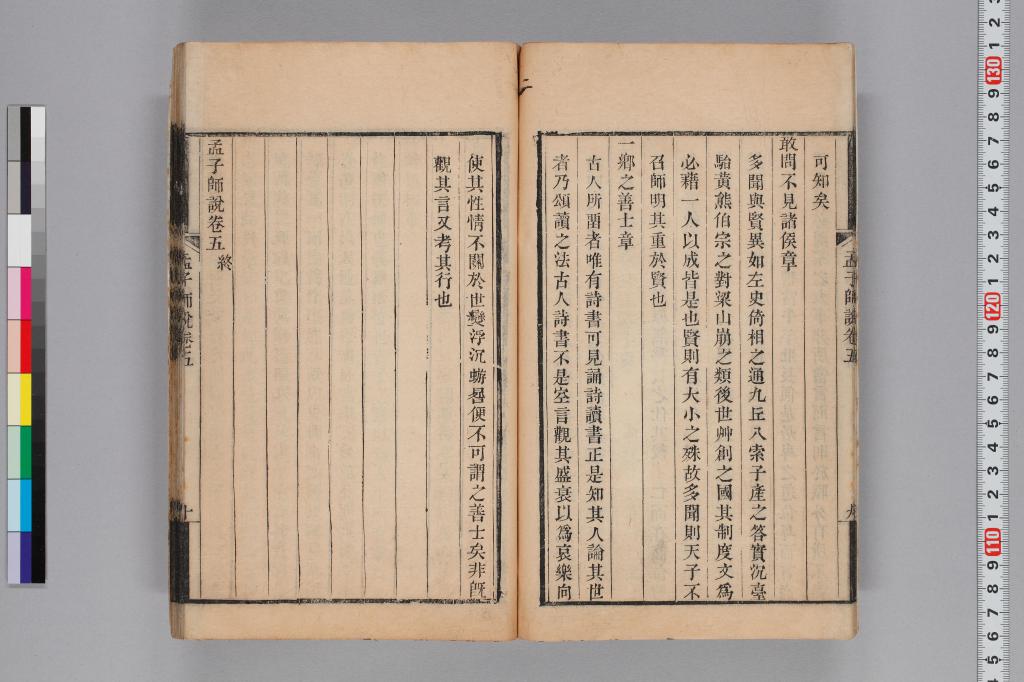 可知矣
敢問不見諸侯章
多聞與賢異如左史倚相之通九丘八索子產之答實沉臺
駘黃熊伯宗之對梁山崩之類後世艸創之國其制度文爲
必藉一人以成皆是也賢則有大小之殊故多聞則天子不
召師明其重於賢也
一鄉之善士章
古人所留者唯有詩書可見誦詩讀書正是知其人論其世
者乃頌讀之法古人詩書不是空言觀其盛衰以爲哀樂向
使其性情不關於世變浮沉蜉蝣便不可謂之善士矣非旣
觀其言又考其行也
孟子師說卷五 終
孟子師說卷五
九
孟子師說卷五
十